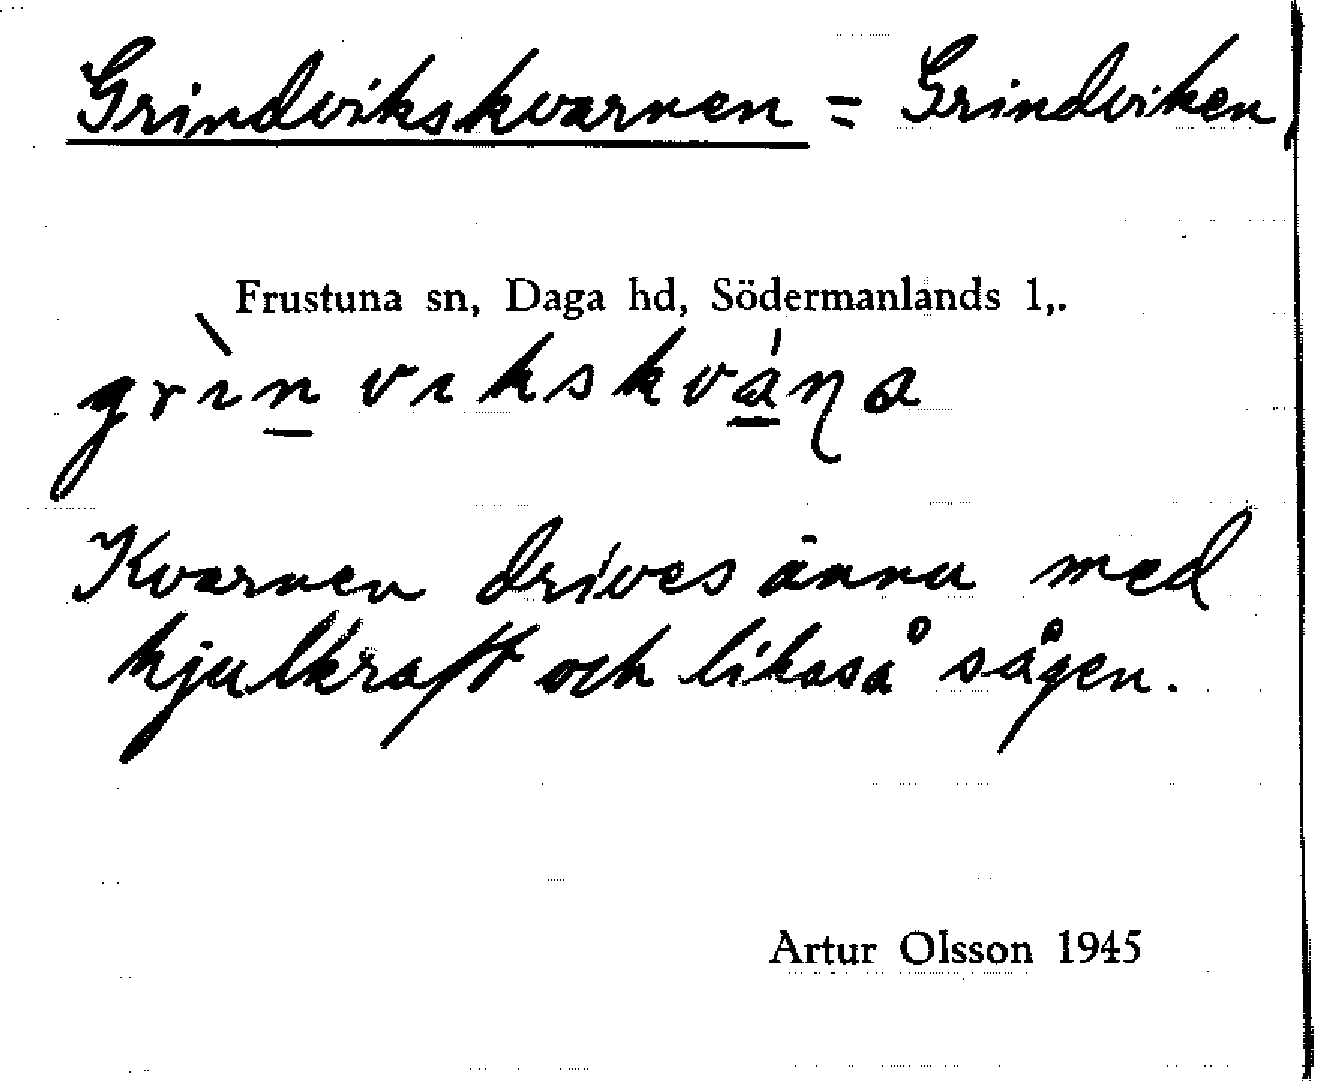 Grindvikskvarnen = Grindviken,
Frustuna sn, Daga hd, Södermanlands l,.
grìn vikskvána
Kvarnen drives ännu med
hjulkraft och likaså sågen.
Artur Olsson 1945